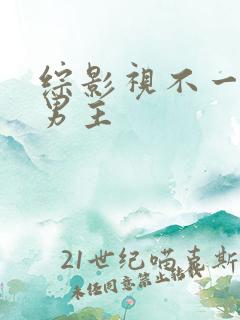 综影视不一
男主
21世纪喵克斯
未经同意禁止转载